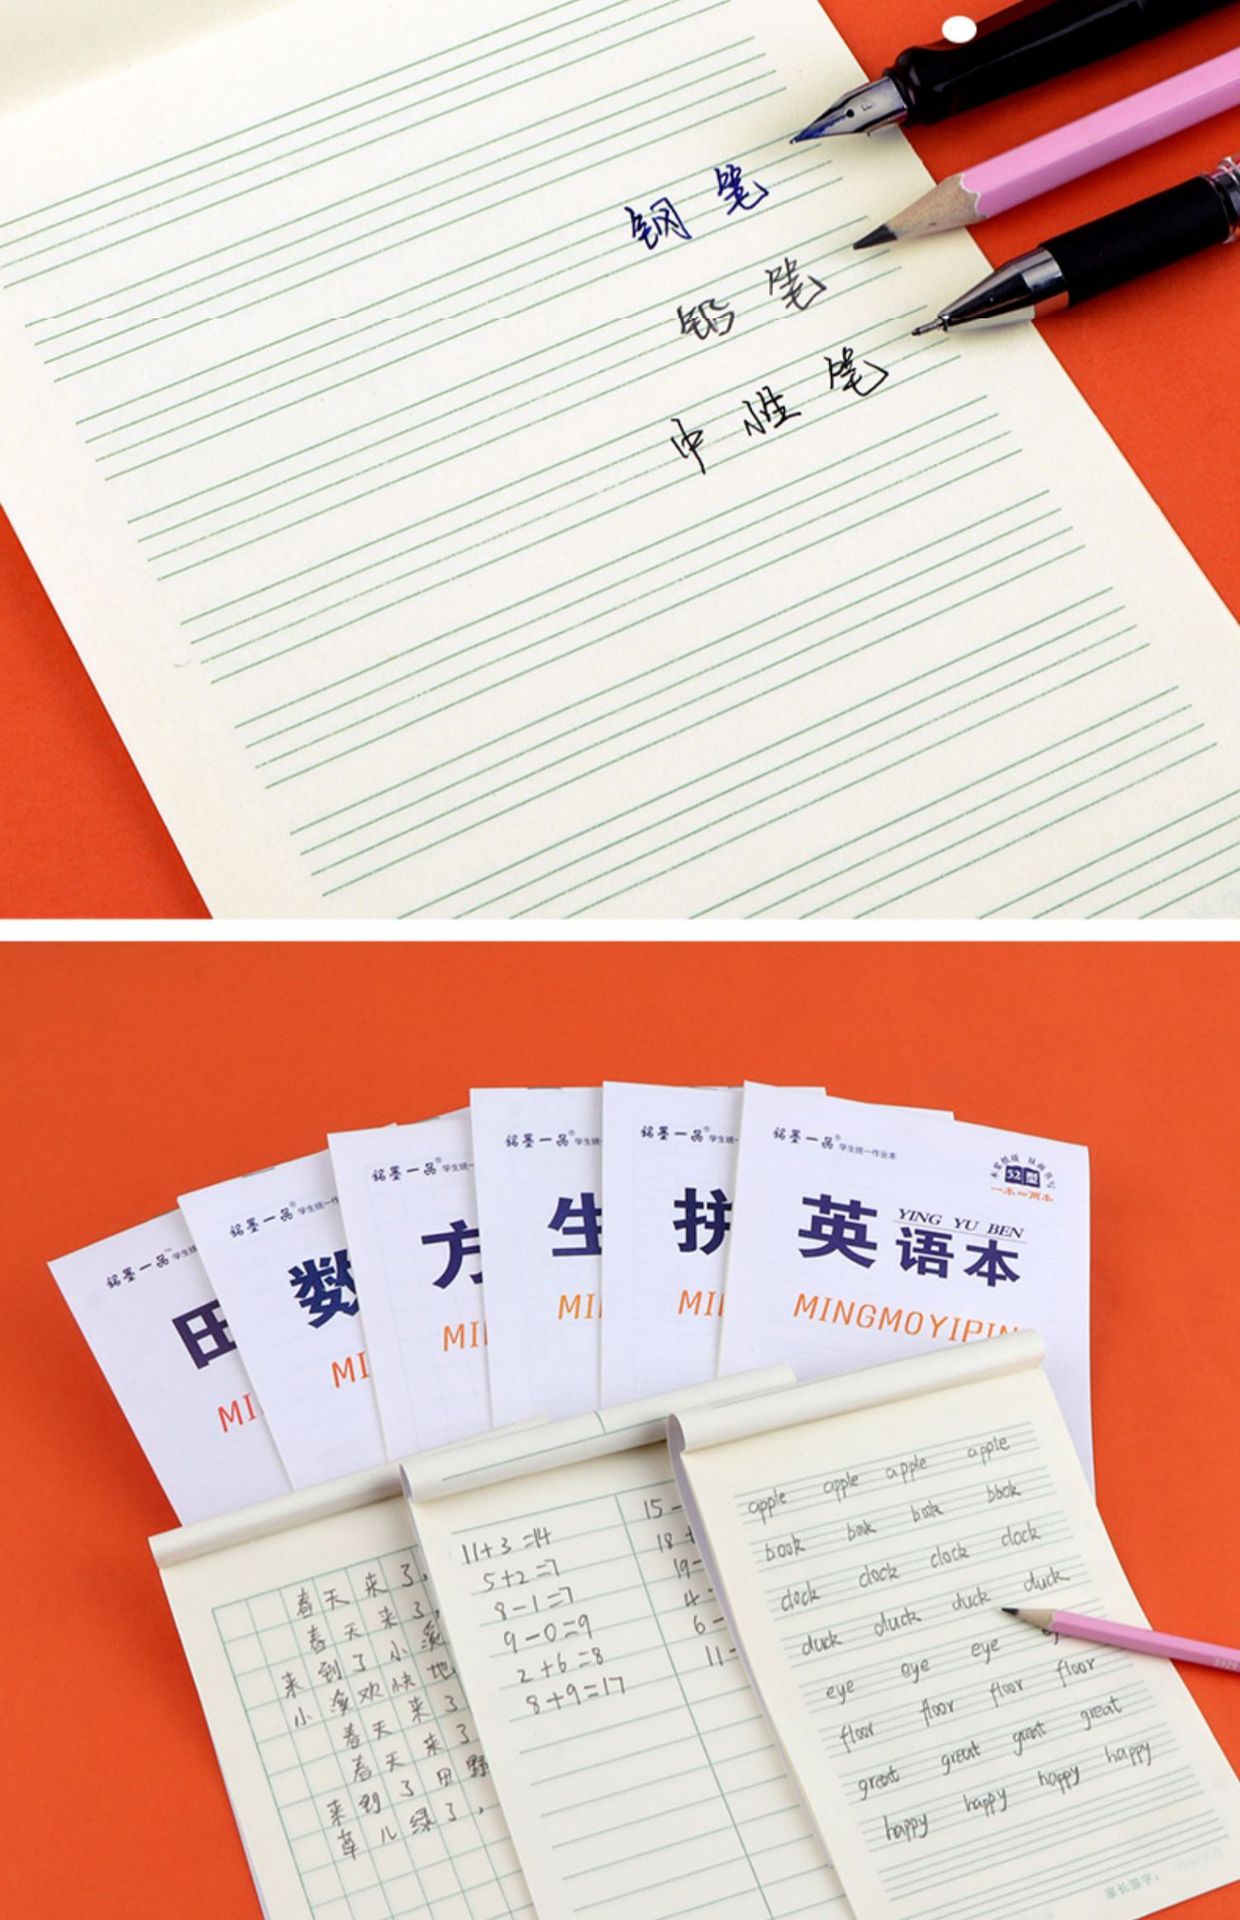 钢笔
铅笔
中性笔
铭墨一品™ 学生统
田
MI
铭墨一品® 学生统一作
数
MI
铭墨一品® 学生统一
方
MI
铭墨一品® 学生统一
生
MI
铭墨一品® 学生统一
拼
MI
铭墨一品® 学生统一作业本
52型
一本=两本
YING YU BEN
英语本
MINGMOYIPIN
春天来了,
春天来了,
来到了小溪
小溪欢快地
春天来了
春天来了
来到了田野
草儿绿了,
11+3=14
5+2=7
8-1=7
9-0=9
2+6=8
8+9=17
15-
18+
19-
4-
6-
11-
apple apple apple apple
book book book book
clock clock clock clock
duck duck duck duck
eye eye eye
floor floor floor floor
great great great great
happy happy happy happy